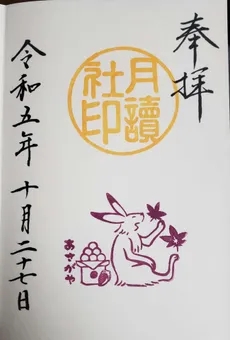 奉拝
月讀
社印
あさがや
令和五年 十月二十七日